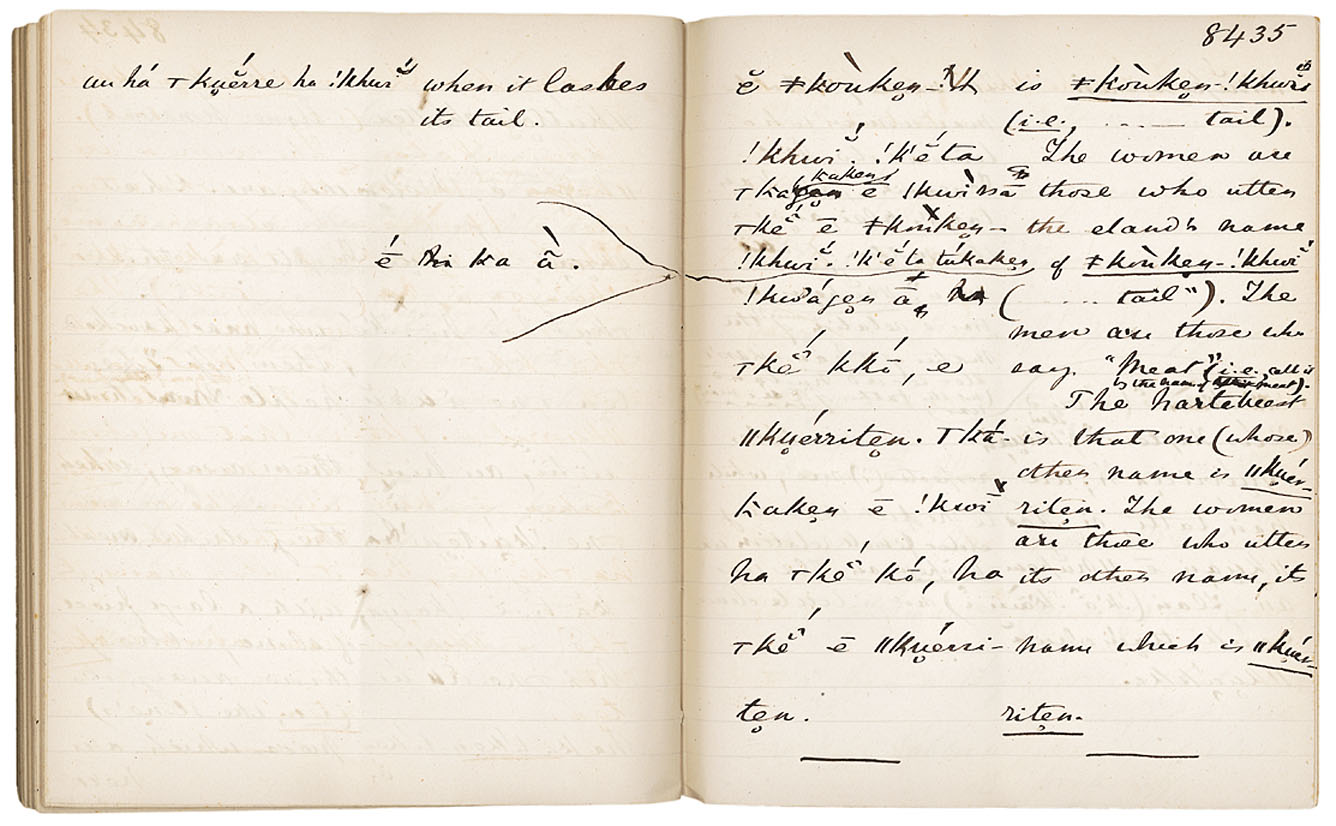 au há ⊤ku̯ĕ́rre ha !khwĭ́ when it lashes
its tail.
é ka ã̀.
8435
ĕ ǂkoùken̯- is ǂkoùken̯-!khwĭ
(i.e., ..... tail).
!khwĭ́. !k'ĕ́ta The women are
kaken
⊤ka ē !kwì those who utter
⊤kĕ̃́ ē ǂkoùken̯- the eland's name
!khwĭ́. !k'ĕ́ta túkaken̯ of ǂkoùken̯-!khwĭ́
!kwágen̯ ā (..... tail"). The
men are those who
⊤kĕ̃́ kkṓ, e say "Meat" (i.e., call it
is the name of meat).
The hartebeest
ǁku̯érriten̯. ⊤ká- is that one (whose)
other name is ǁku̯ér-
kaken̯ ē !kwĭ riten̯. The women
are those who utter
ha ⊤kĕ̃́ kṓ, ha its other name, its
⊤kĕ̃́ ē ǁku̯érri- name which is ǁku̯ér-
ten̯. riten̯.